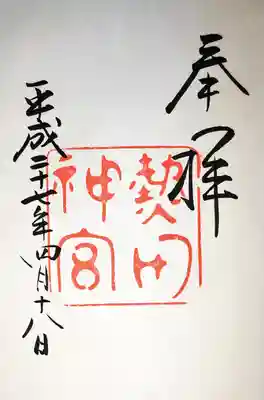 奉拝
熱田神宮
平成二十七年四月十八日